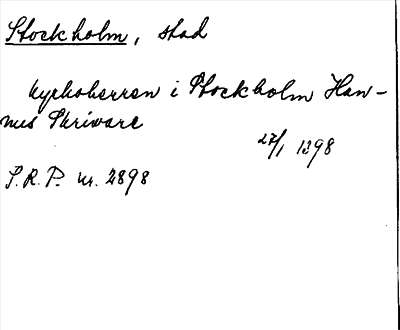 Stockholm, stad
kyrkoherren i Stockholm Han-
nus Skrivare
27/1 1398
S.R.P. nr. 2898